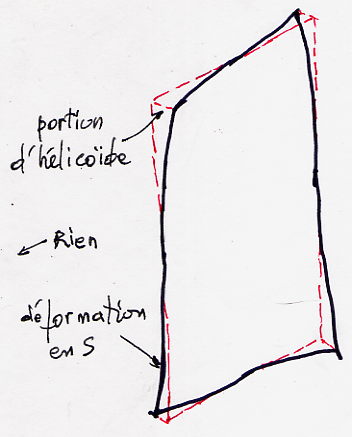 portion
d'hélicoïde
Rien
déformation
en S